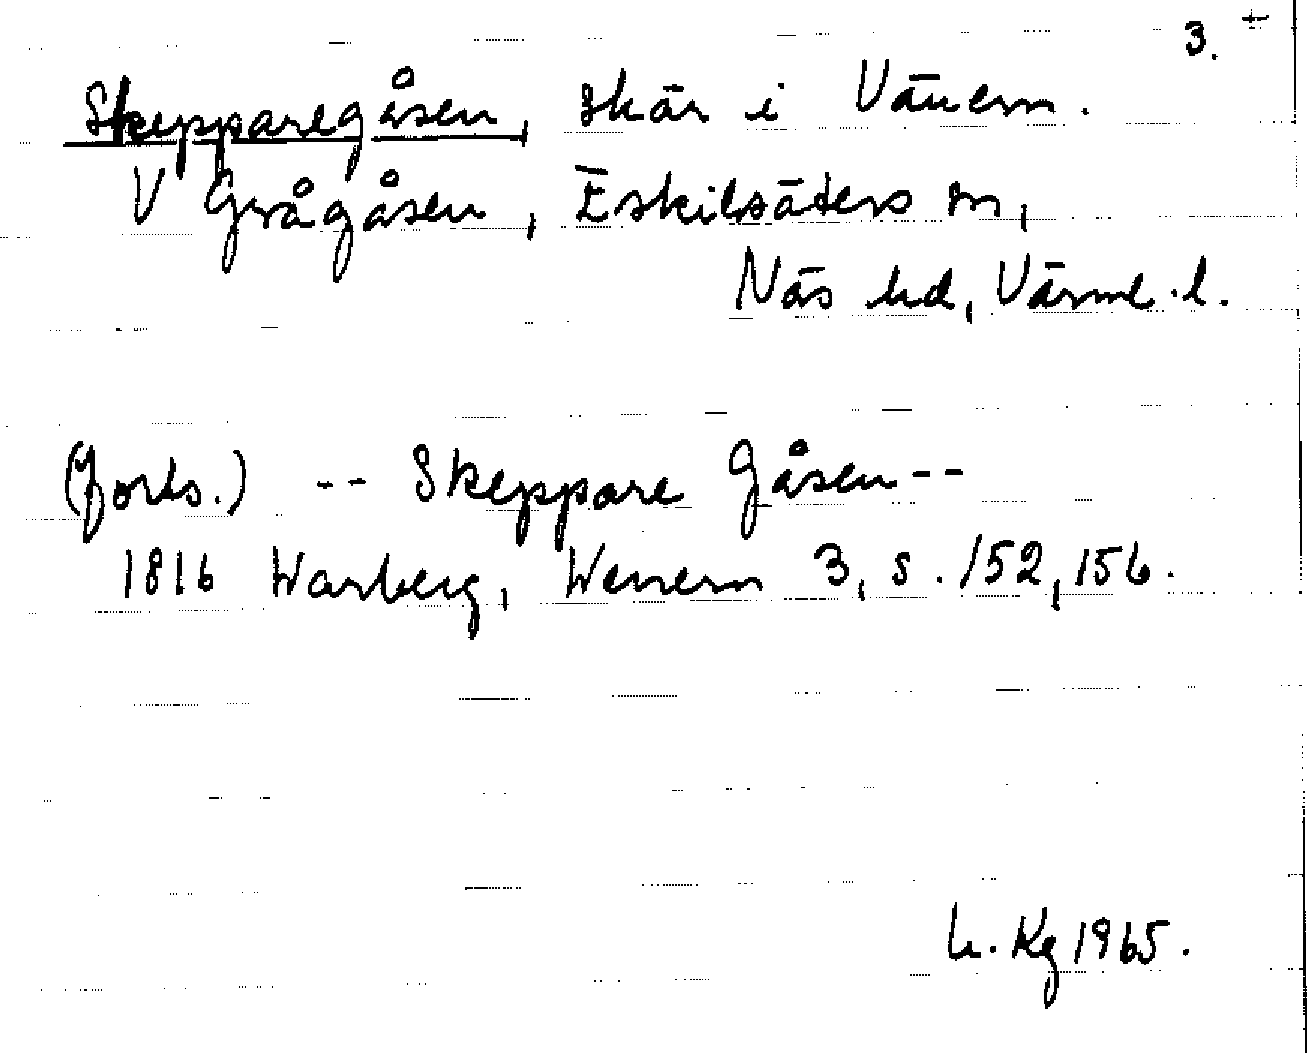 3. +
Skepparegåsen, skär i Vänern.
V Grågåsen, Eskilsäters sn,
Näs hd, Värml. l.
(forts.) -- Skeppare Gåsen --
1816 Warberg, Wenern 3, s. 152, 156.
h. Kg 1965.